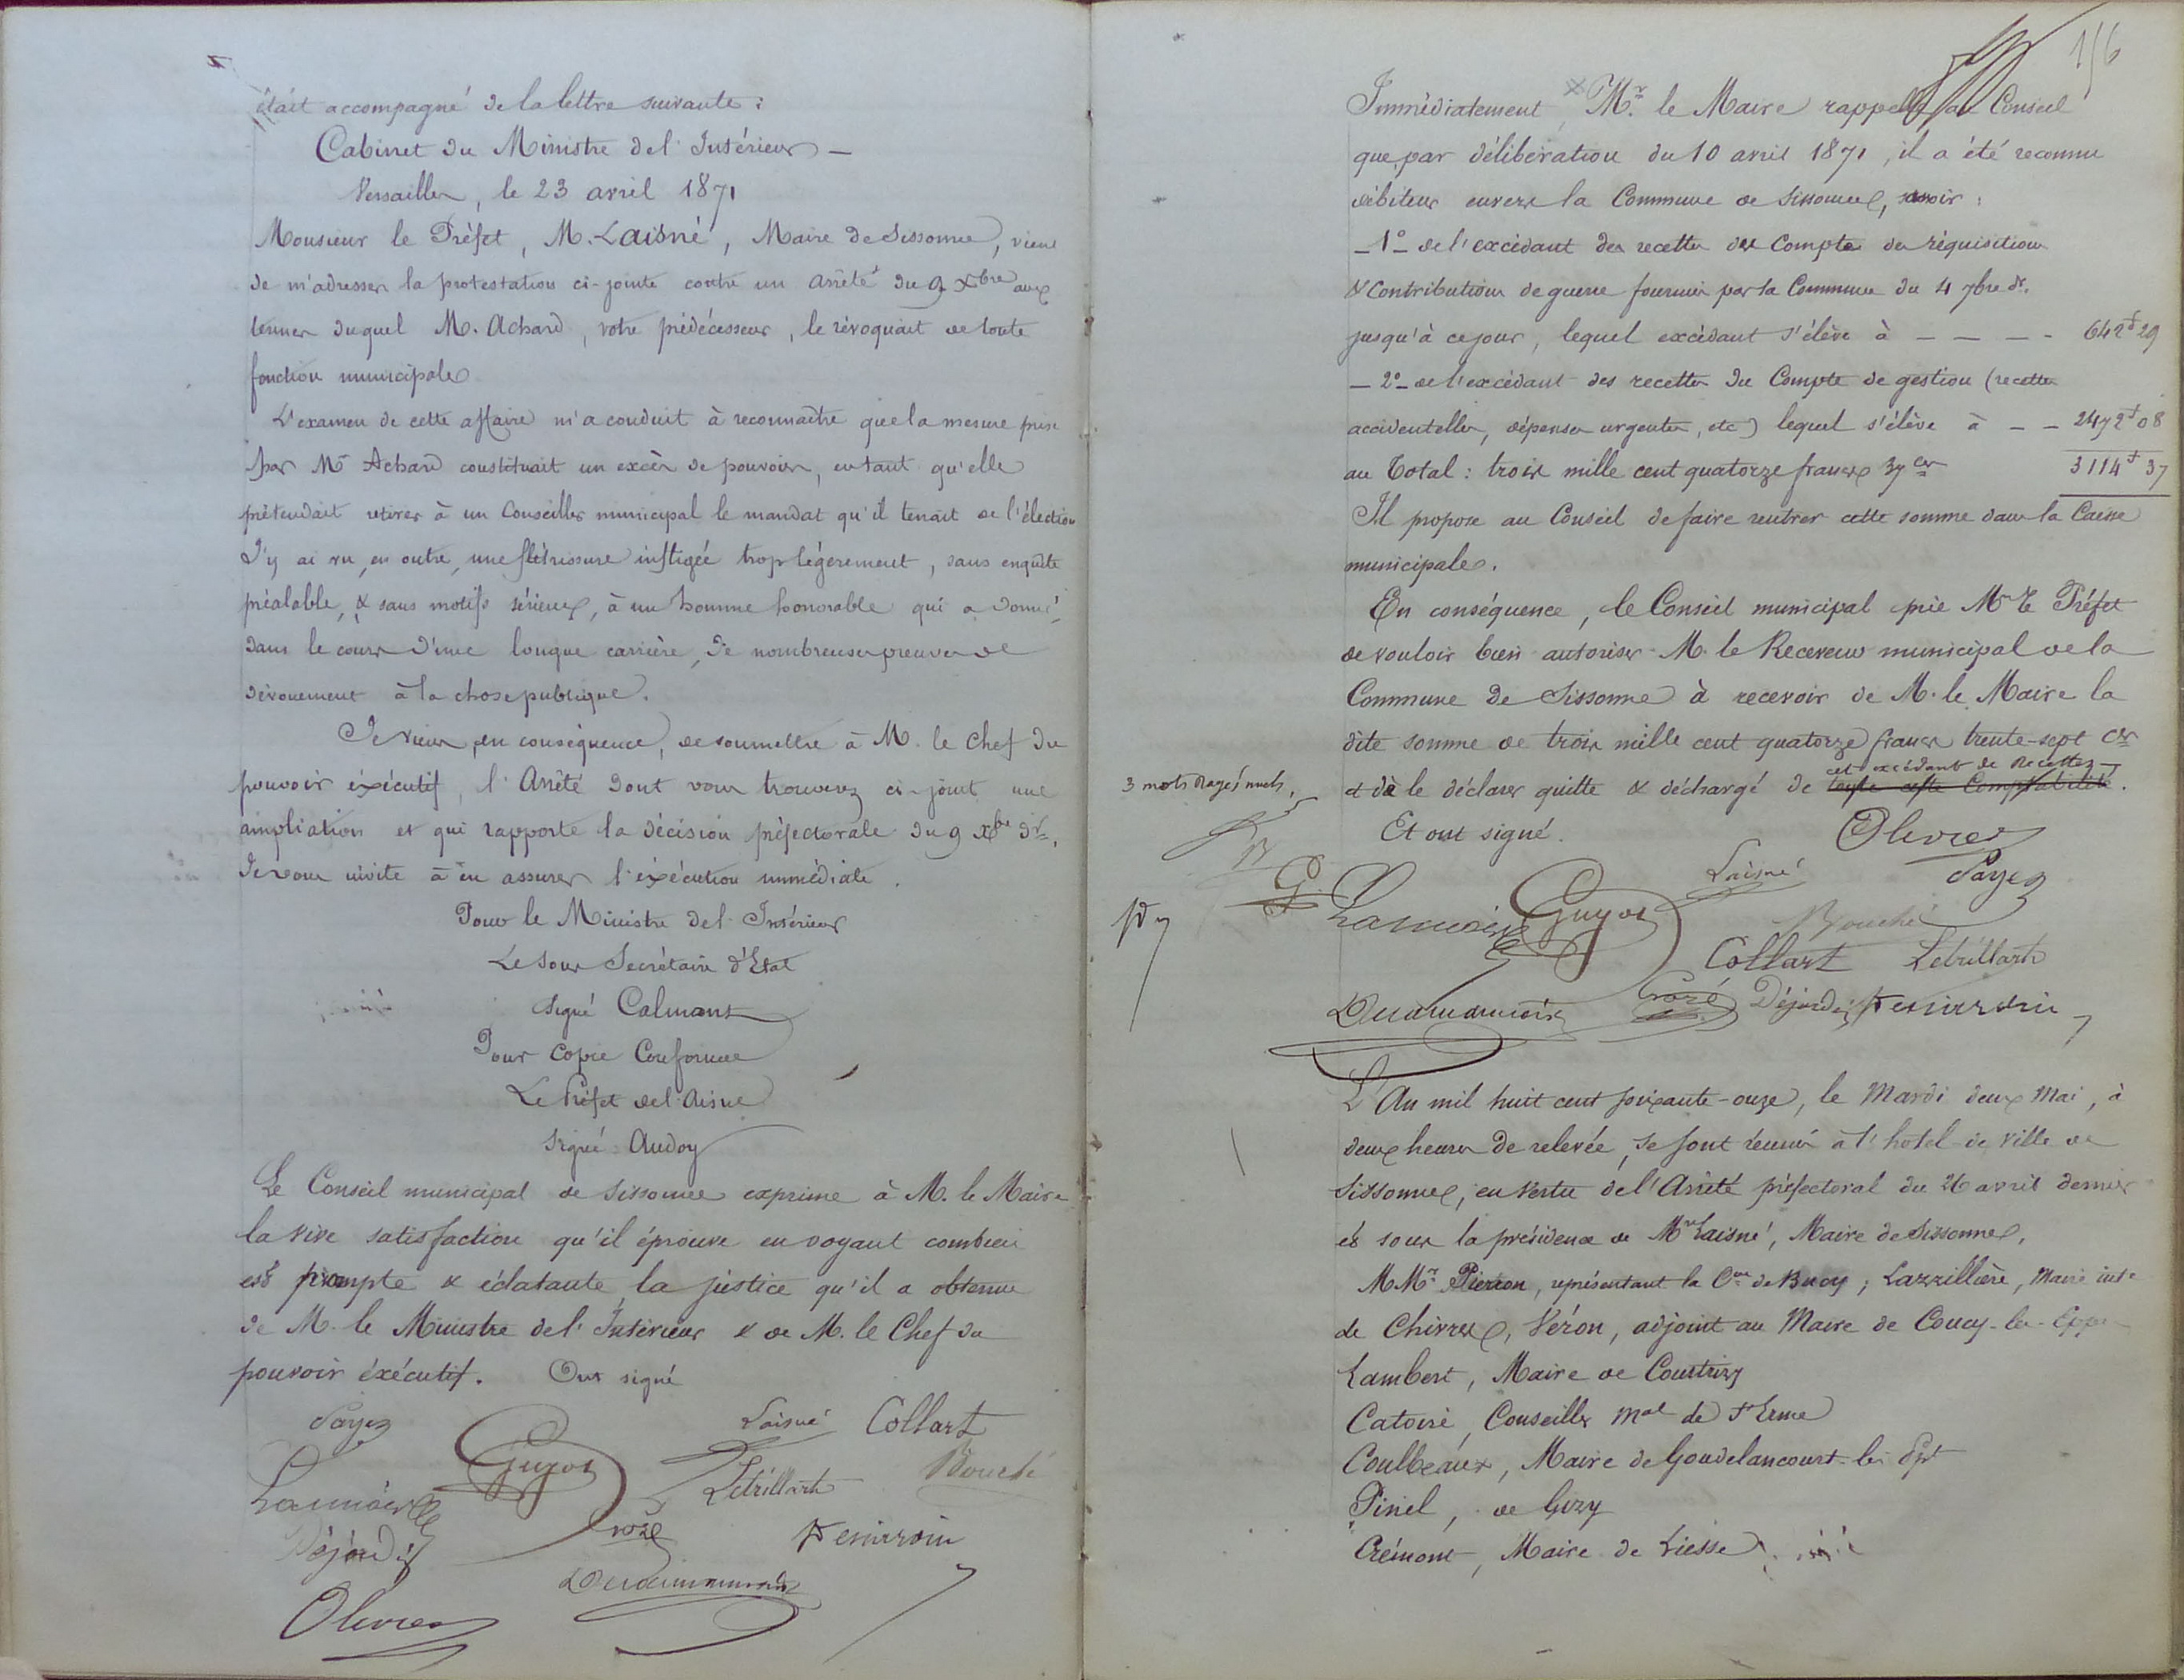 était accompagné de la lettre suivante :
Cabinet du Ministre de l'Intérieur —
Versailles, le 23 avril 1871
Monsieur le Préfet, M. Laisné, Maire de Sissonne, vient
de m'adresser la protestation ci-jointe contre un arrêté du 9 Xbre aux
termes duquel M. Achard, votre prédécesseur, le révoquait de toute
fonction municipale
L'examen de cette affaire m'a conduit à reconnaître que la mesure prise
par Mr Achard constituait un excès de pouvoir, en tant qu'elle
prétendait retirer à un Conseiller municipal le mandat qu'il tenait de l'élection
J'y ai vu, en outre, une flétrissure infligée trop légèrement, sans enquête
préalable, & sans motifs sérieux, à un homme honorable qui a donné,
dans le cours d'une longue carrière, de nombreuses preuves de
dévouement à la chose publique.
Je viens, en conséquence, de soumettre à M. le Chef du
pouvoir éxécutif, l'Arrêté dont vous trouverez ci-joint une
ampliation et qui rapporte la décision préfectorale du 9 Xbre dr.
Je vous invite à en assurer l'éxécution immédiate.
Pour le Ministre de l'Intérieur
Le Sous Secrétaire d'Etat
signé Calmont
Pour copie Conforme
Le Préfet de l'Aisne
signé Audoy
Le Conseil municipal de Sissonne exprime à M. le Maire
la vive satisfaction qu'il éprouve en voyant combien
est prompte & éclatante la justice qu'il a obtenue
de M. le Ministre de l'Intérieur & de M. le Chef du
pouvoir éxécutif. Ont signé
Payez Guyot Laisné Collart
Létrillart Bouché
Dejardin Crozé
Olivier
156
Immédiatement, Mr. le Maire rappelle au Conseil
que par délibération du 10 avril 1871, il a été reconnu
débiteur envers la Commune de Sissonne, savoir :
— 1° — de l'excédant des recettes des Comptes des réquisitions
& Contributions de guerre fournies par la Commune du 4 7bre dr.
jusqu'à ce jour, lequel excédant s'élève à — — — — 642f 29
— 2° — de l'excédant des recettes du Compte de gestion (recettes
accidentelles, dépenses urgentes, etc) lequel s'élève à — — 2472f 08
au Total : trois mille cent quatorze francs 37 ces 3114f 37
Il propose au Conseil de faire rentrer cette somme dans la Caisse
municipale.
En conséquence, le Conseil municipal prie Mr le Préfet
de vouloir bien autoriser M. le Receveur municipal de la
Commune de Sissonne à recevoir de M. le Maire la
dite somme de trois mille cent quatorze francs trente-sept ces
cet excédant de Recettes
3 mots rayés nuls, et de le déclarer quitte & déchargé de toute cette Comptabilité.
Et ont signé. Olivier
Laisné Payez
Guyot Bouché
Collart Létrillart
Crozé Dejardin
L'An mil huit cent soixante-onze, le Mardi deux Mai, à
deux heures de relevée, se sont réunis à l'hotel de ville de
Sissonne, en vertu de l'Arrêté préfectoral du 26 avril dernier
et sous la présidence de Mr Laisné, Maire de Sissonne,
MMrs Pierron, représentant la Cne de Bucy ; Lazzillière, Maire int.
de Chivres, Véron, adjoint au Maire de Coucy-les-Eppes
Lambert, Maire de Courtrizy
Catoire, Conseiller mal de St Erme
Coulbeaux, Maire de Goudelancourt-les-Ppt
Pinel, de Gizy
Crémont, Maire de Liesse